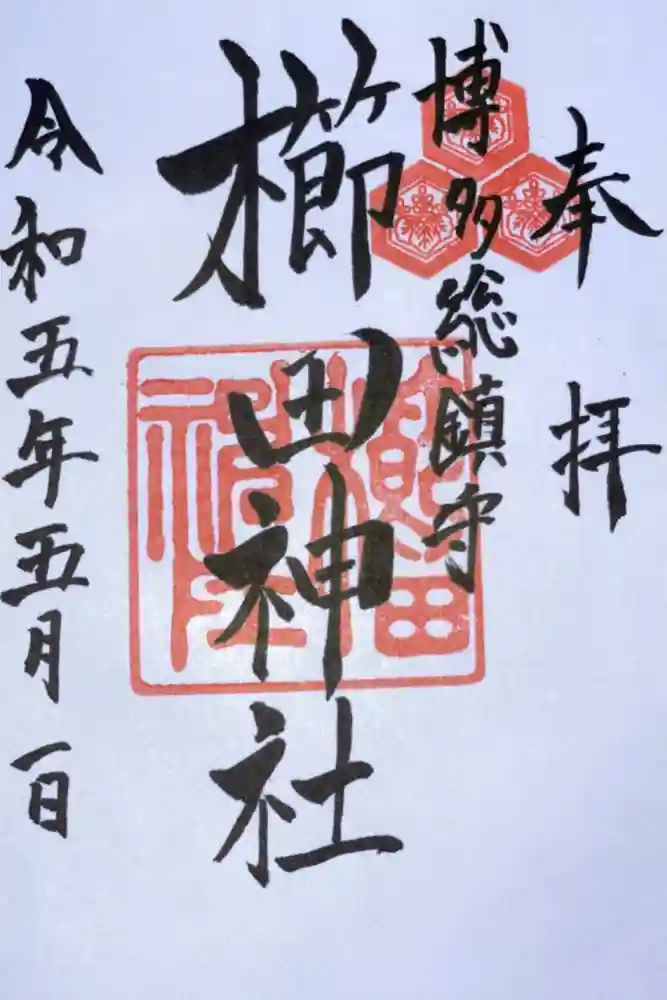 奉拝
博多総鎮守
櫛田神社
令和五年五月一日
櫛田神社